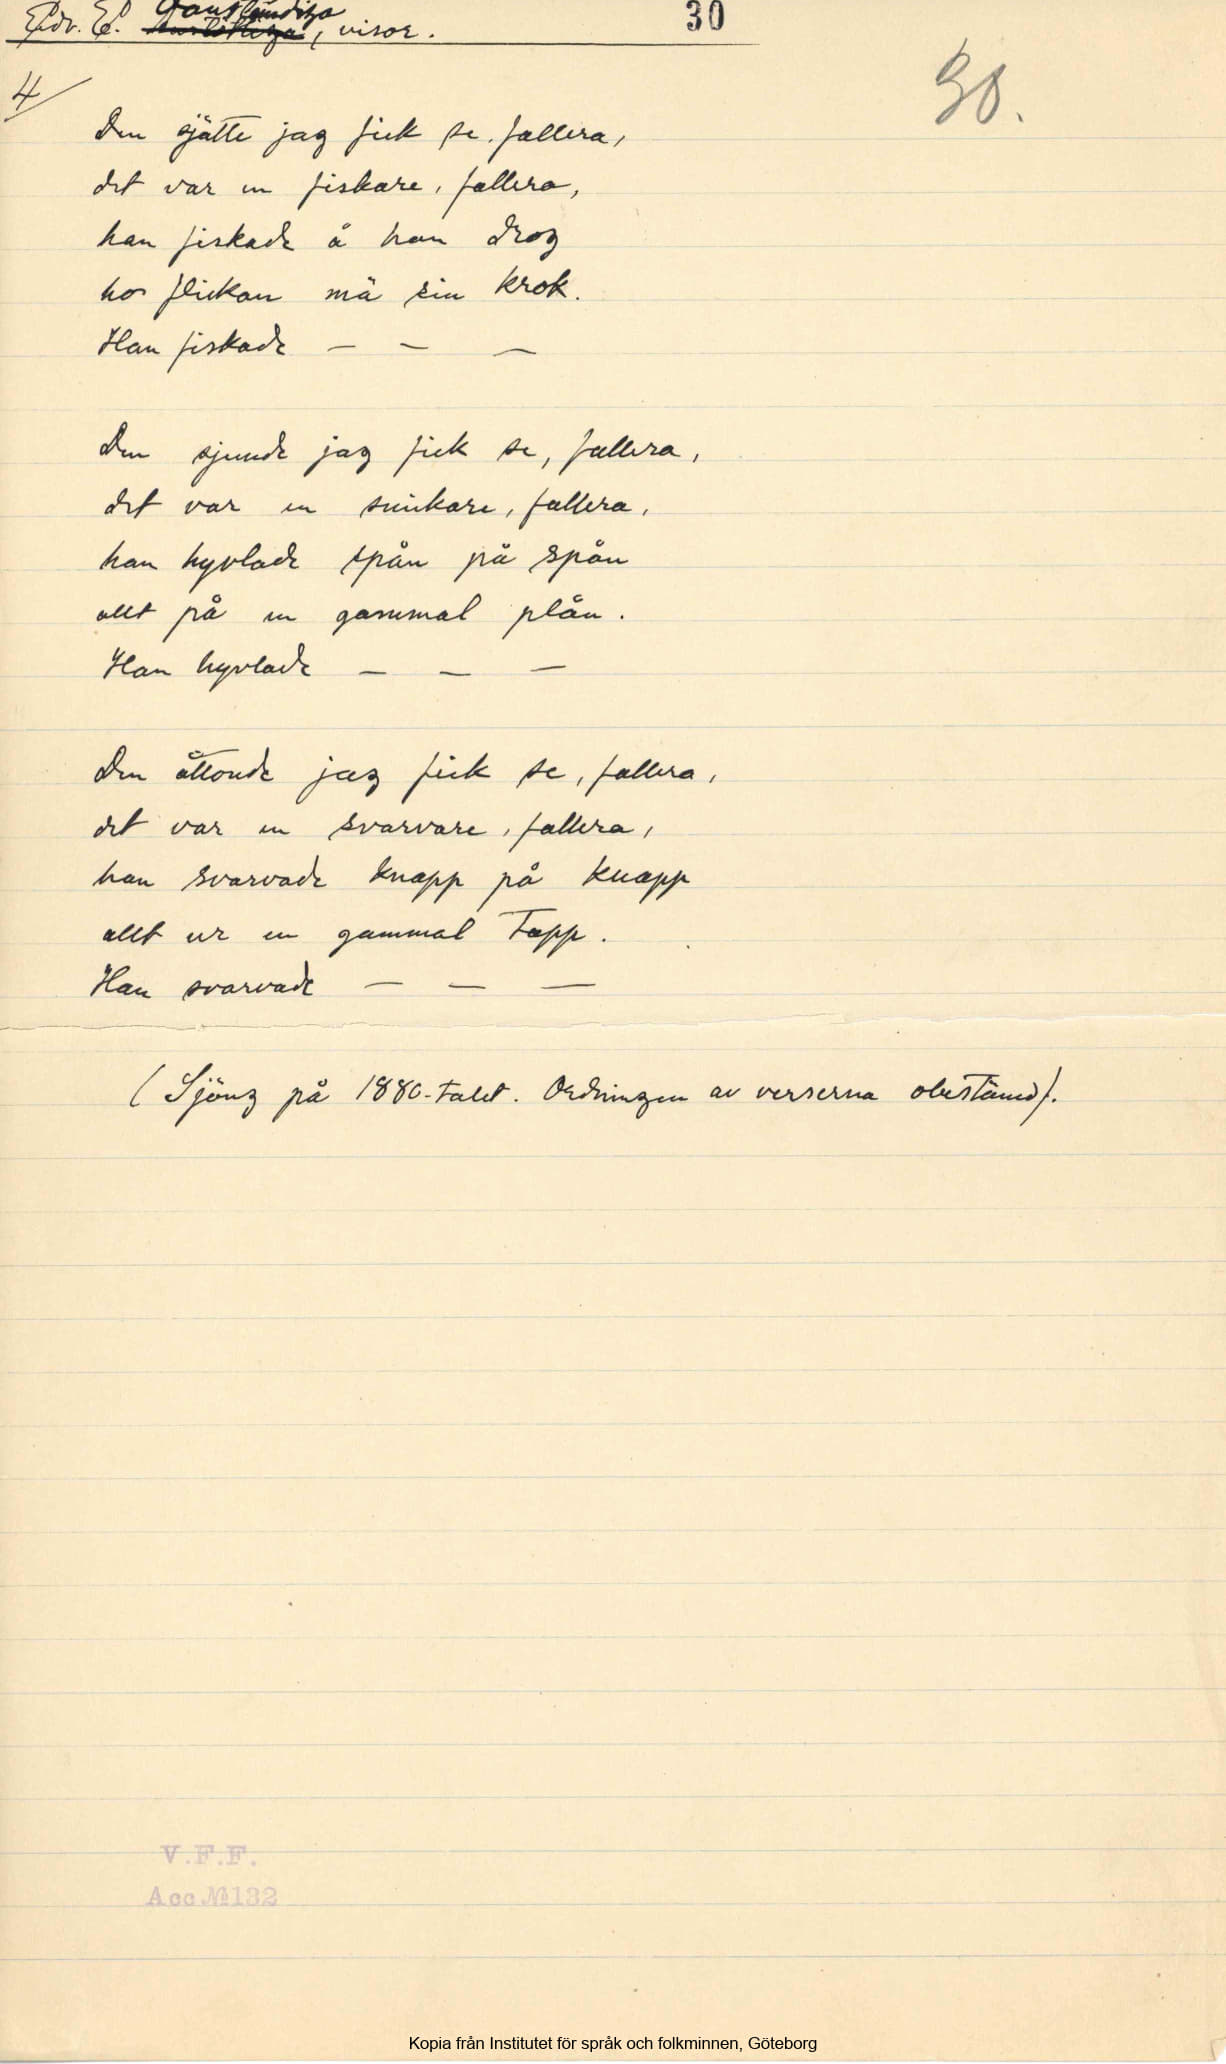 Edv. E. , visor.
30
30.
4
Den sjätte jag fick se, fallera,
det var en fiskare, fallera,
han fiskade å han drog
hos flickan mä sin krok.
Han fiskade — — —
Den sjunde jag fick se, fallera,
det var en snikare, fallera,
han hyvlade spån på spån
allt på en gammal plån.
Han hyvlade — — —
Den åttonde jag fick se, fallera,
det var en svarvare, fallera,
han svarvade knapp på knapp
allt ur en gammal tapp.
Han svarvade — — —
(Sjöng på 1880-talet. Ordningen av verserna obestämd).
V.F.F.
Acc №132
Kopia från Institutet för språk och folkminnen, Göteborg